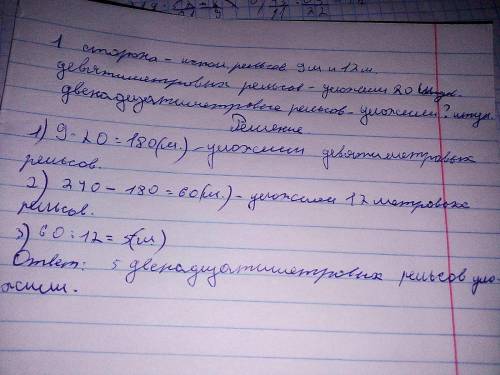 1 сторона - испол. рельсов 9м и 12м.
девятиметровых рельсов - уложили 20 штук.
двенадцатиметровые рельсов - уложили ? штук.
Решение
1) 9 · 20 = 180 (м.) - уложили девятиметровых
рельсов.
2) 240 - 180 = 60 (м.) - уложили 12 метровых
рельсов.
3) 60 : 12 = 5 (ш)
Ответ: 5 двенадцатиметровых рельсов уло-
жили.